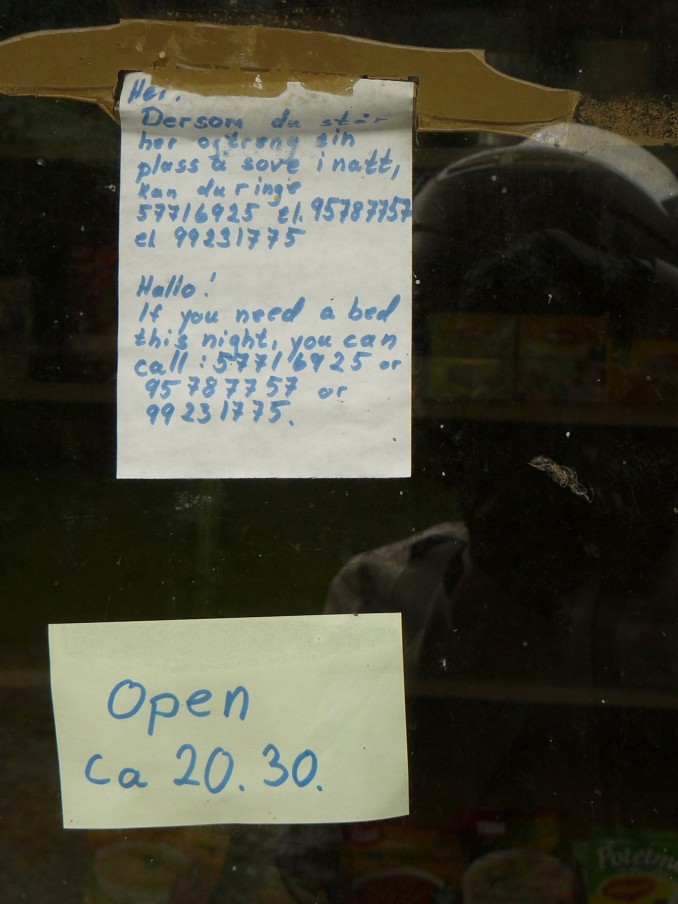 Hei.
Dersom du står
her og treng ein
plass å sove i natt,
kan du ringe
57716925 el. 95787757
el 99231775
Hallo!
If you need a bed
this night, you can
call: 57716925 or
95 787757 or
99231775.
Open
ca 20.30.